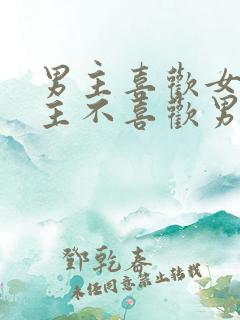 男主喜歡女
主不喜歡男
鄧乾春
未任同意禁止转载